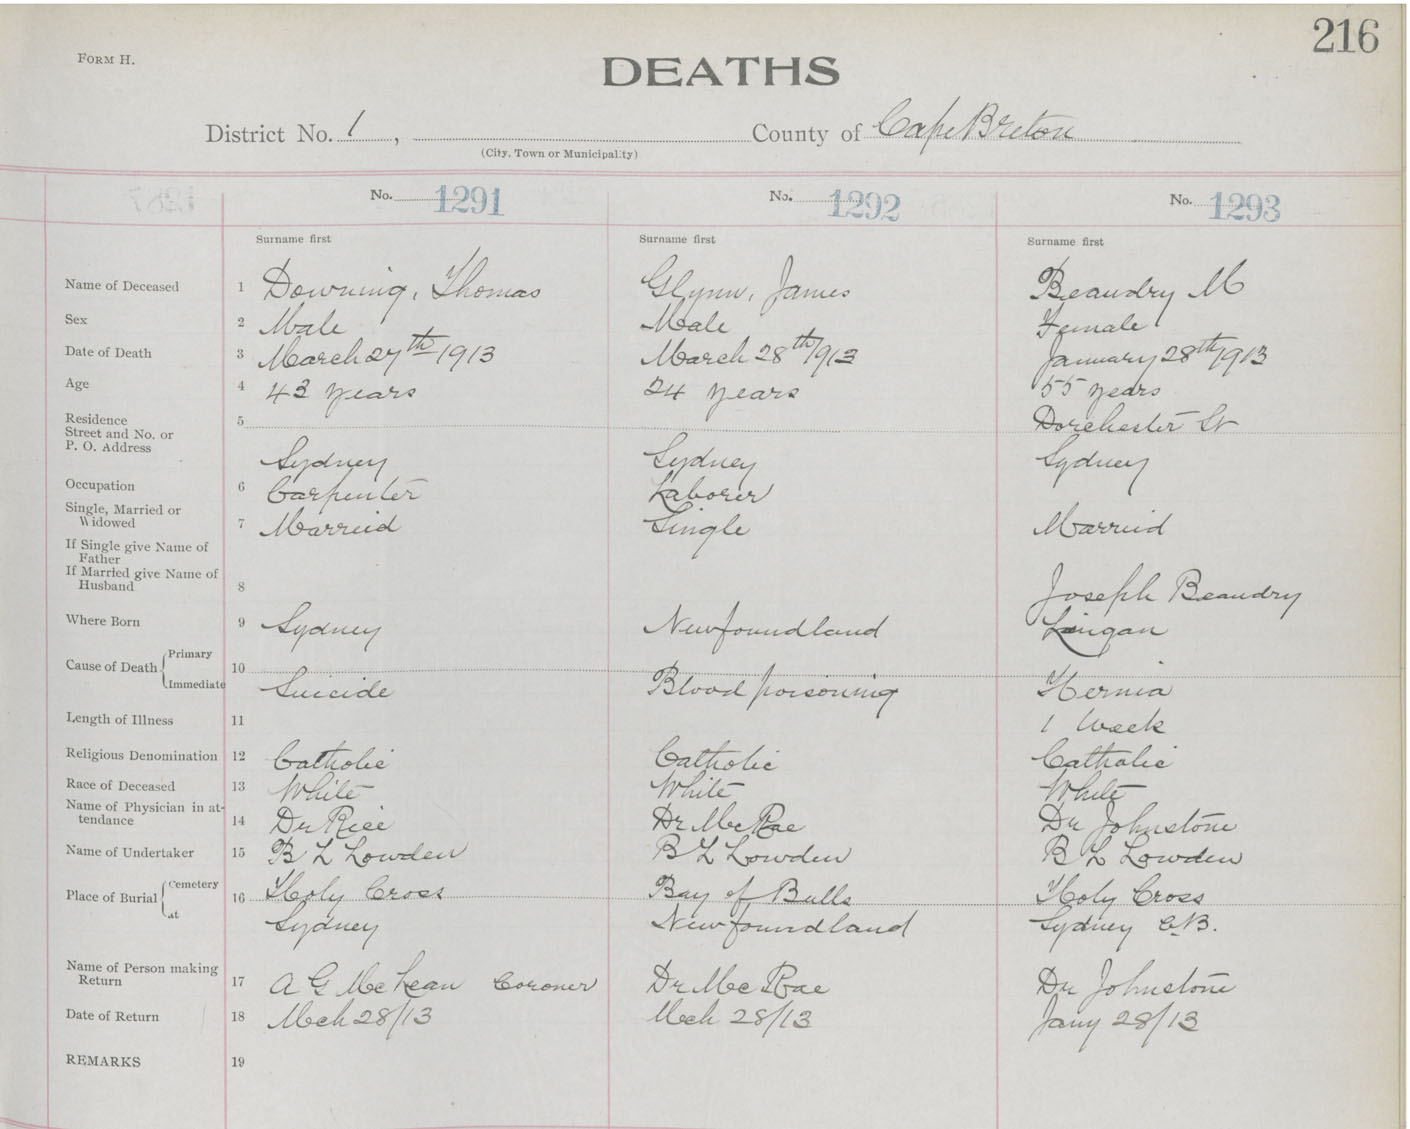 216
FORM H.
DEATHS
District No. 1, County of Cape Breton
(City, Town or Municipality)
No. 1291 No. 1292 No. 1293
Surname first Surname first Surname first
Name of Deceased 1 Downing, Thomas Glynn, James Beaudry M
Sex 2 Male Male Female
Date of Death 3 March 27th 1913 March 28th 1913 January 28th 1913
Age 4 43 years 24 years 55 years
Residence 5 Dorchester St
Street and No. or
P. O. Address Sydney Sydney Sydney
Occupation 6 Carpenter Laborer
Single, Married or
Widowed 7 Married Single Married
If Single give Name of
Father
If Married give Name of
Husband 8 Joseph Beaudry
Where Born 9 Sydney Newfoundland Lingan
Cause of Death Primary 10
Immediate Suicide Blood poisoning Hernia
Length of Illness 11 1 Week
Religious Denomination 12 Catholic Catholic Catholic
Race of Deceased 13 White White White
Name of Physician in at-
tendance 14 Dr Rice Dr McRae Dr Johnstone
Name of Undertaker 15 B L Lowden B L Lowden B L Lowden
Place of Burial Cemetery 16 Holy Cross Bay of Bulls Holy Cross
at Sydney Newfoundland Sydney C.B.
Name of Person making
Return 17 A G McLean Coroner Dr McRae Dr Johnstone
Date of Return 18 Mch 28/13 Mch 28/13 Jany 28/13
REMARKS 19